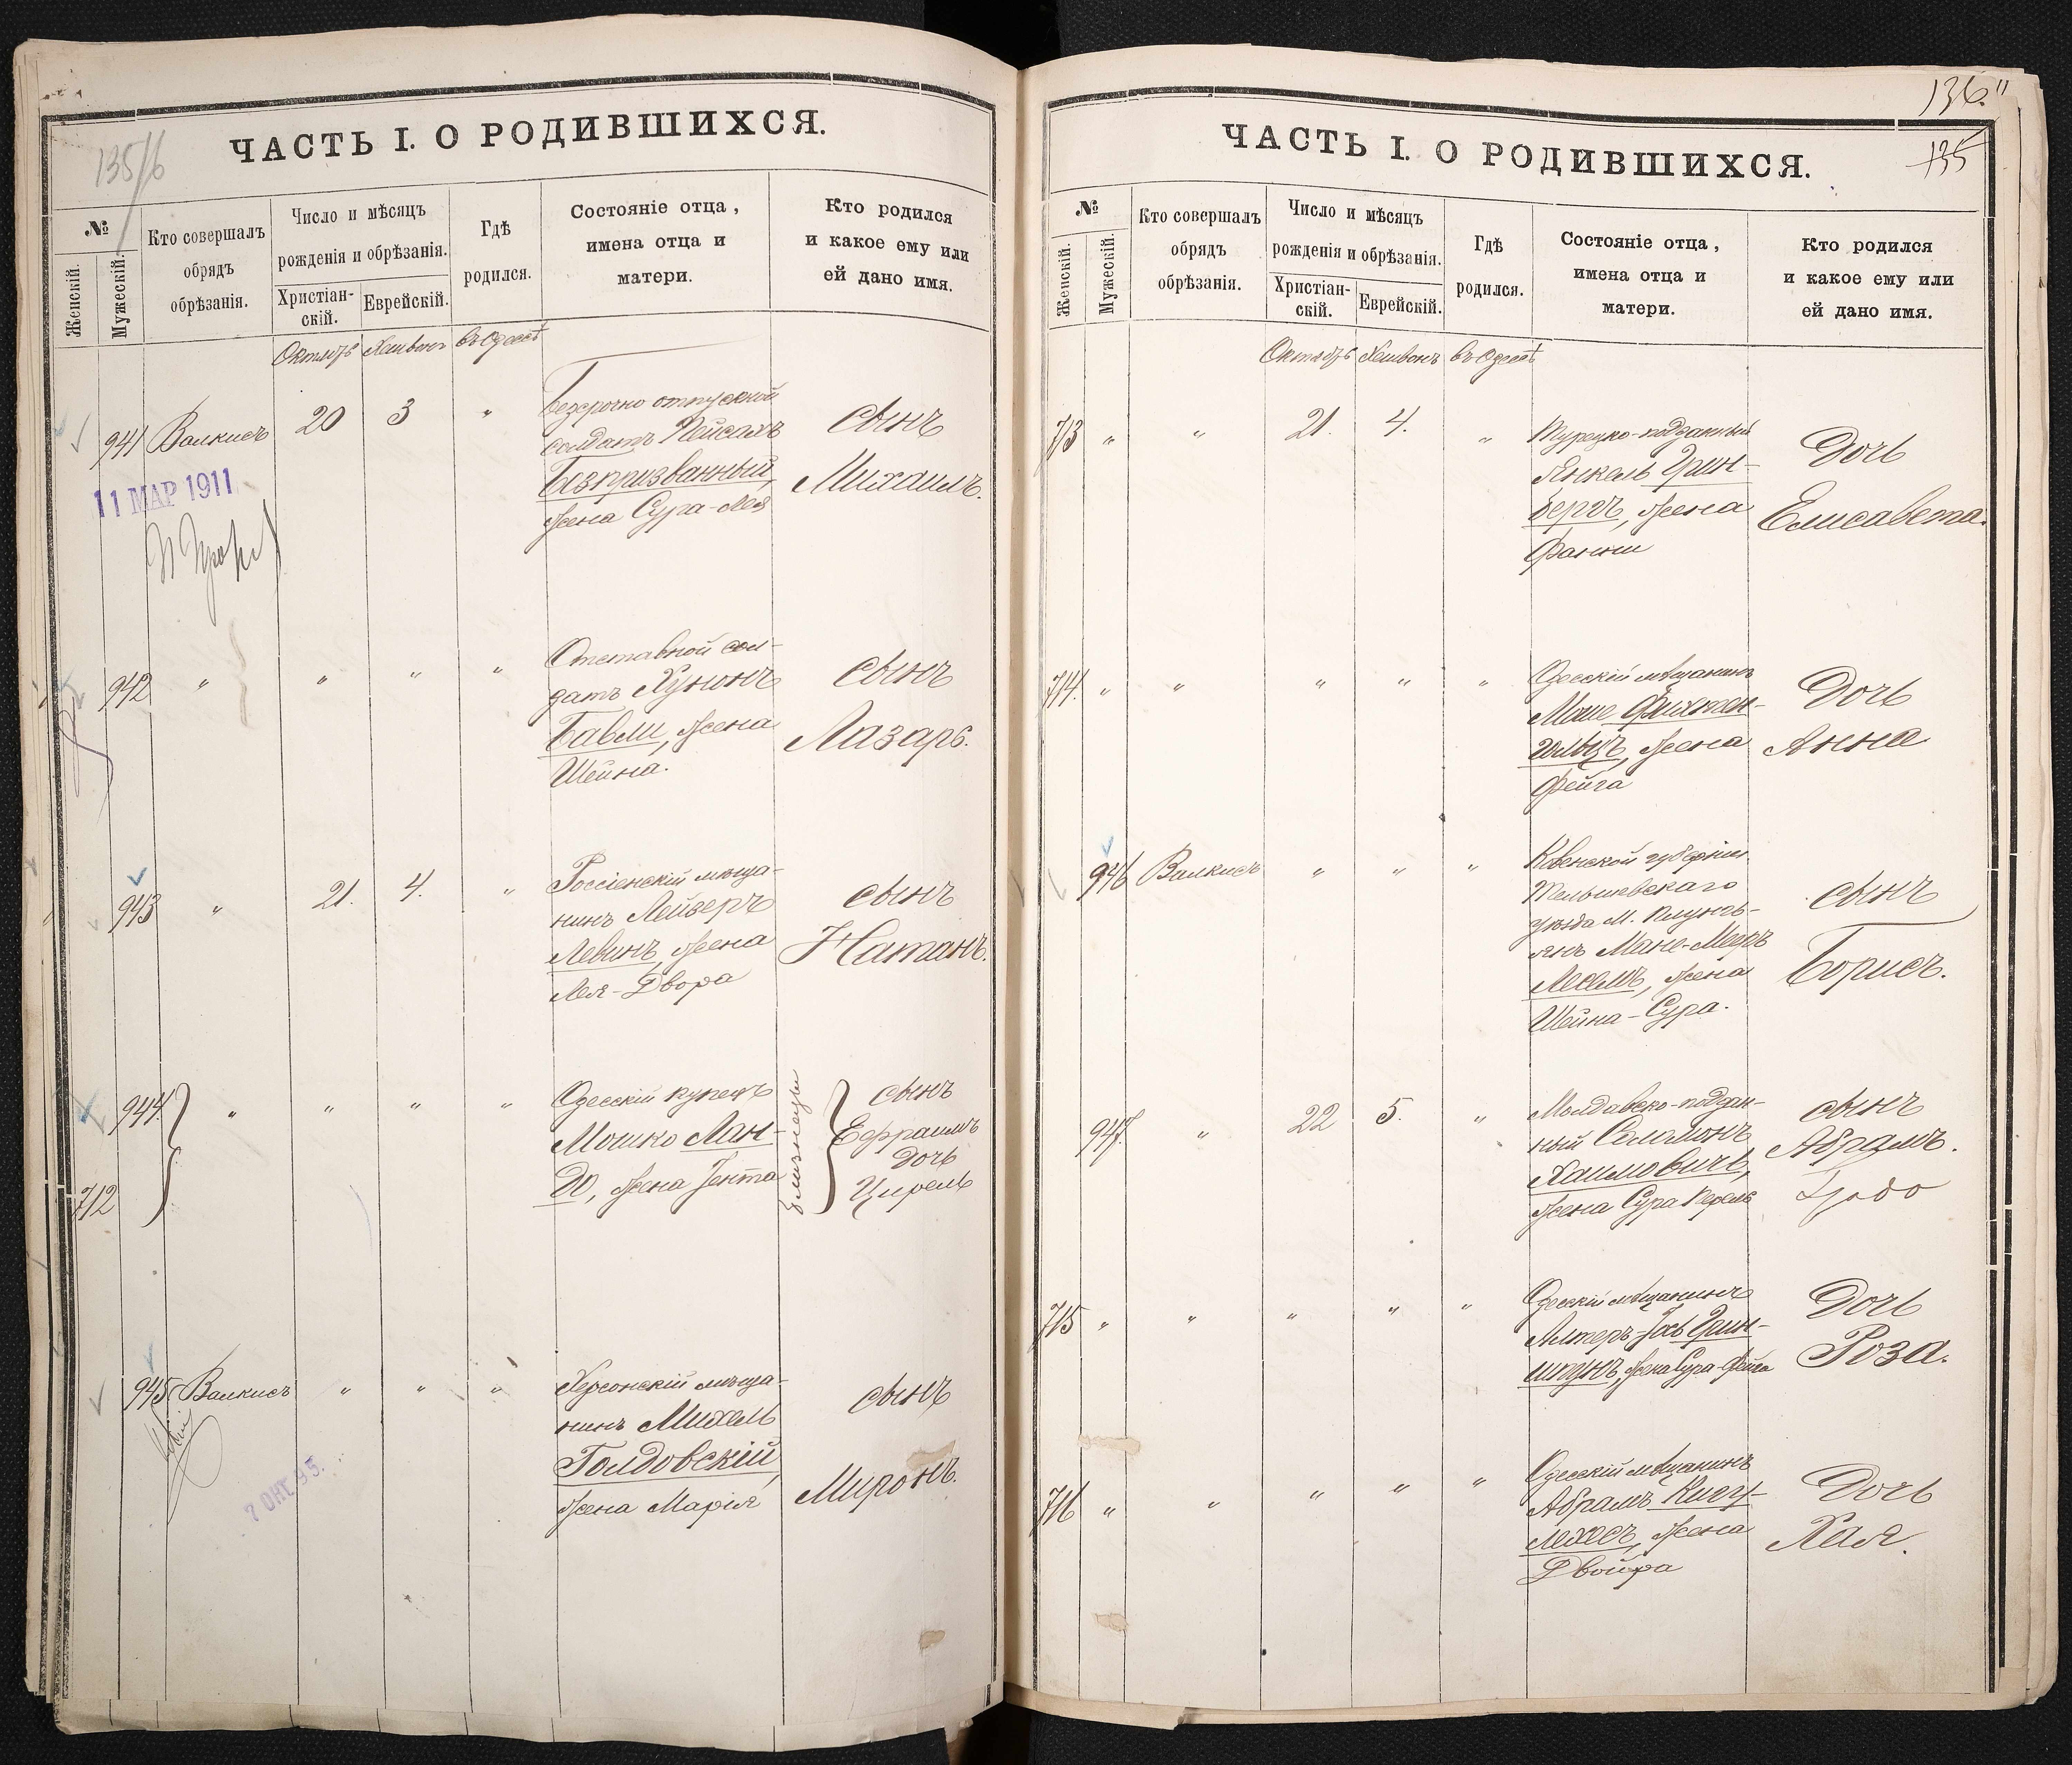 135/6
ЧАСТЬ I. О РОДИВШИХСЯ.
№
Женскій.
Мужескій.
Кто совершалъ
обрядъ
обрѣзанія.
Число и мѣсяцъ
рожденія и обрѣзанія.
Христіан-
скій.
Еврейскій.
Гдѣ
родился.
Состояніе отца,
имена отца и
матери.
Кто родился
и какое ему или
ей дано имя.
Октябрь Хешвонъ въ Одессѣ
941 Валкисъ 20 3 "
Безсрочно отпускной
солдатъ Пейсахъ
Безпризванный,
жена Сура-Лея
сынъ
Михаилъ.
11 МАР 1911
942 " " " "
Отставной сол-
датъ Хунонъ
Бавли, жена
Шейна.
сынъ
Лазарь.
943 " 21. 4. "
Россіенскій мѣща-
нинъ Лейзеръ
Левинъ, жена
Лея-Двора
сынъ
Натанъ.
944. " " " "
712
Одесскій купецъ
Мошко Лан-
до, жена Іента
близнецы
сынъ
Ефраимъ
дочь
Цирель
945 Валкисъ " " "
Херсонскій мѣща-
нинъ Михель
Голдовскій,
жена Марія
сынъ
Миронъ.
7 ОКТ. 95.
136.
135
ЧАСТЬ I. О РОДИВШИХСЯ.
№
Женскій.
Мужескій.
Кто совершалъ
обрядъ
обрѣзанія.
Число и мѣсяцъ
рожденія и обрѣзанія.
Христіан-
скій.
Еврейскій.
Гдѣ
родился.
Состояніе отца,
имена отца и
матери.
Кто родился
и какое ему или
ей дано имя.
Октябрь Хешвонъ въ Одессѣ
713 " " 21. 4. "
Турецко-подданный
Янкель Грин-
бергъ, жена
Фанни
Дочь
Елисавета.
714. " " " " "
Одесскій мѣщанинъ
Моше
жена
Фейга
Дочь
Анна
946 Валкисъ " " "
Ковенской губерніи
Тельшевскаго
уѣзда м. Плунгь-
янъ Мане-Мееръ
жена
Шейна-Сура.
сынъ
Борисъ.
947. " 22 5. "
Молдавско-поддан-
ный Соломонъ
Хаимовичъ,
жена Сура Перель
сынъ
Абрамъ.
715 " " " " "
Одесскій мѣщанинъ
Алтеръ-Іось Грин-
шпунъ, жена Сура-Фейга
Дочь
Роза.
716 " " " " "
Одесскій мѣщанинъ
Абрамъ
жена
Двойра
Дочь
Хая.